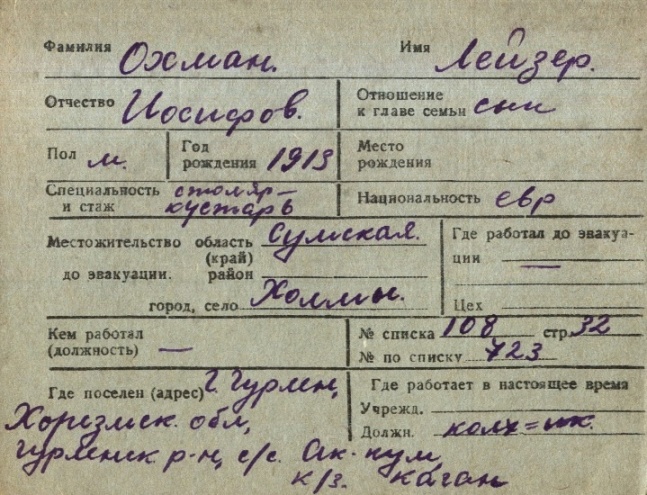 Фамилия Охман. Имя Лейзер.
Отчество Иосифов. Отношение к главе семьи сын
Пол м. Год рождения 1913 Место рождения
Специальность и стаж столяр-кустарь Национальность евр
Местожительство до эвакуации. область (край) Сумская.
район
город, село Холмы.
Где работал до эвакуации —
Цех
Кем работал (должность) —
№ списка 108 стр. 32
№ по списку 723
Где поселен (адрес) г. Гурлен,
Хорезмск. обл,
Гурленск. р-н, с/с. Ак-кум,
к/з. Каган
Где работает в настоящее время
Учрежд.
Должн. колх=ик.